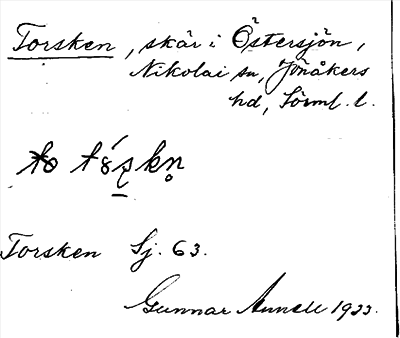 Torsken, skär i Östersjön,
Nikolai sn, Jönåkers
hd, Sörml. l.
Torsken Sj. 63.
Gunnar 1933.